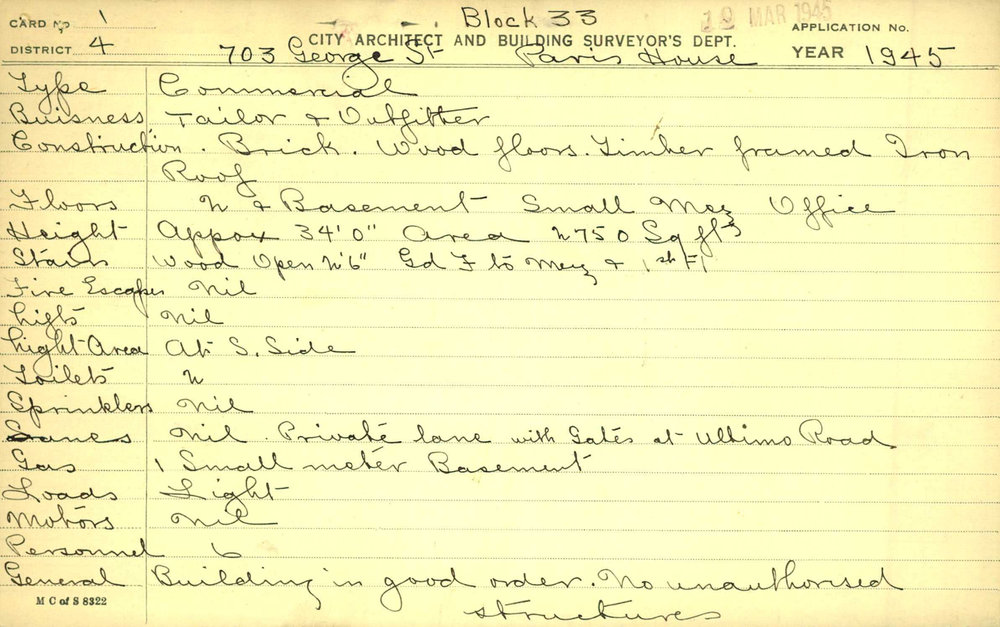 CARD No 1 Block 33 19 MAR 1945 APPLICATION No.
DISTRICT. 4 CITY ARCHITECT AND BUILDING SURVEYOR'S DEPT. YEAR 1945
703 George St Paris House
Type Commercial
Buisness Tailor & Outfitter
Construction. Brick. Wood floors. Timber framed Iron
Roof
Floors 2 & Basement Small Mez Office
Height Appox 34'0" Area 2750 Sq fts
Stairs Wood Open 2'6" Gd F to Mez & 1st Fl
Fire Escapes Nil
Lifts Nil
Light Area At S. Side
Toilets 2
Sprinklers Nil
Lanes Nil. Private lane with Gates at Ultimo Road
Gas 1 Small meter Basement
Loads Light
Motors Nil
Personnel 6
General Building in good order. No unauthorised
structures
M C of S 8322